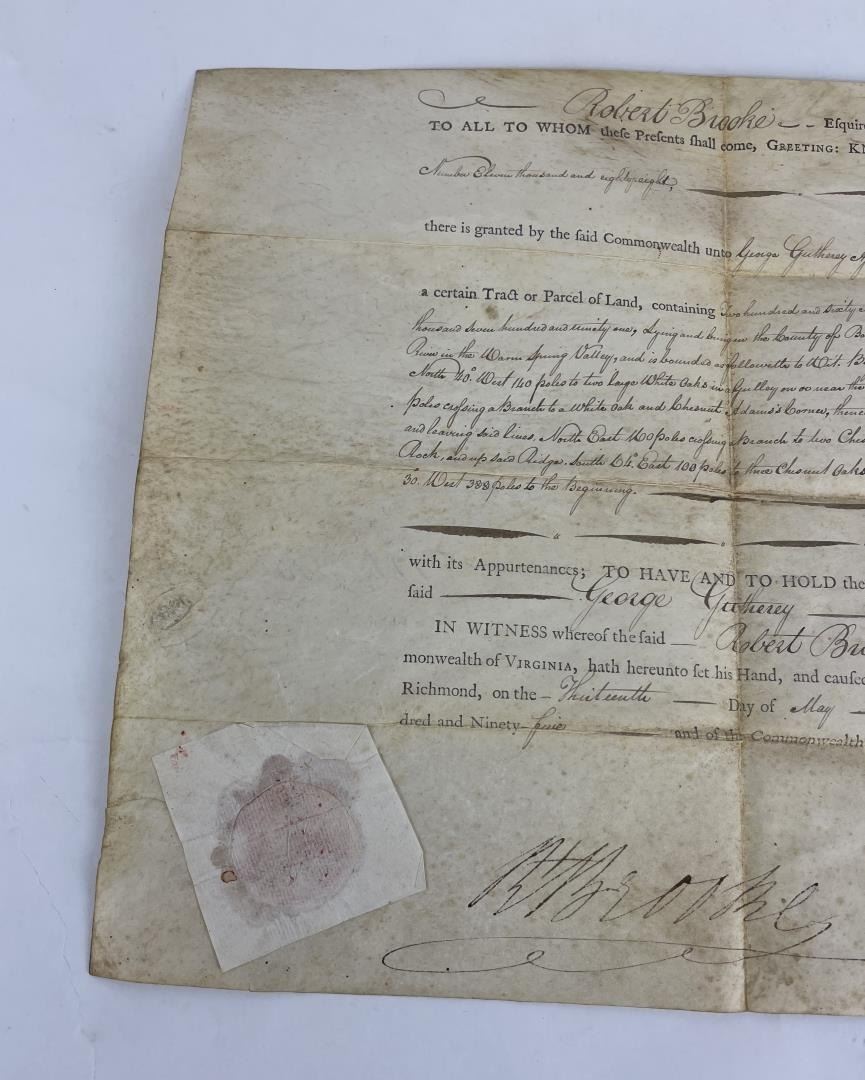 Robert Brooke Eſquire
TO ALL TO WHOM theſe Preſents ſhall come, GREETING: KN
Number Eleven thousand and eightyeight,
there is granted by the ſaid Commonwealth unto George Gutherey
a certain Tract or Parcel of Land, containing Two hundred and sixty
thousand seven hundred and ninety one, Lying and being in the County of Ba
River in the Warm Spring Valley, and is bounded as followeth to Wit. B
North 40° West 140 poles to two large White Oaks in a Gulley on or near the
poles crossing a Branch to a White Oak and Chesnut Adams's Corner, thence
and leaving said lines, North East 160 poles crossing a Branch to two Ches
Rock, and up said Ridge. South East 100 poles to three Chesnut Oaks
30° West 388 poles to the Beginning.
with its Appurtenances; TO HAVE AND TO HOLD the
ſaid George Gutherey
IN WITNESS whereof the ſaid Robert Bro
monwealth of VIRGINIA, hath hereunto ſet his Hand, and cauſed
Richmond, on the Thirteenth Day of May
dred and Ninety-five and of the Commonwealth
Rt Brooke